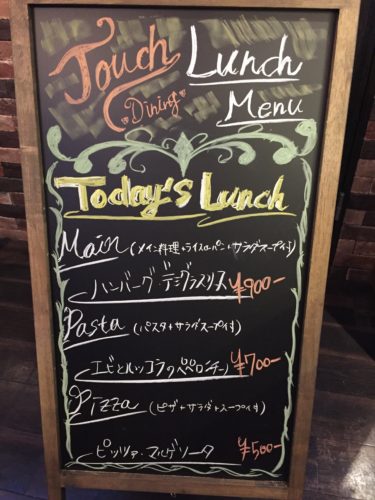 Touch Lunch
♡Dining♡ Menu
Today's Lunch
Main (メイン料理+ライスorパン+サラダスープ付)
ハンバーグ デミグラスソース ¥900-
Pasta (パスタ+サラダスープ付)
エビとルッコラのペペロンチーノ ¥700-
Pizza (ピザ+サラダ+スープ付)
ピッツァ・マルゲリータ ¥500-